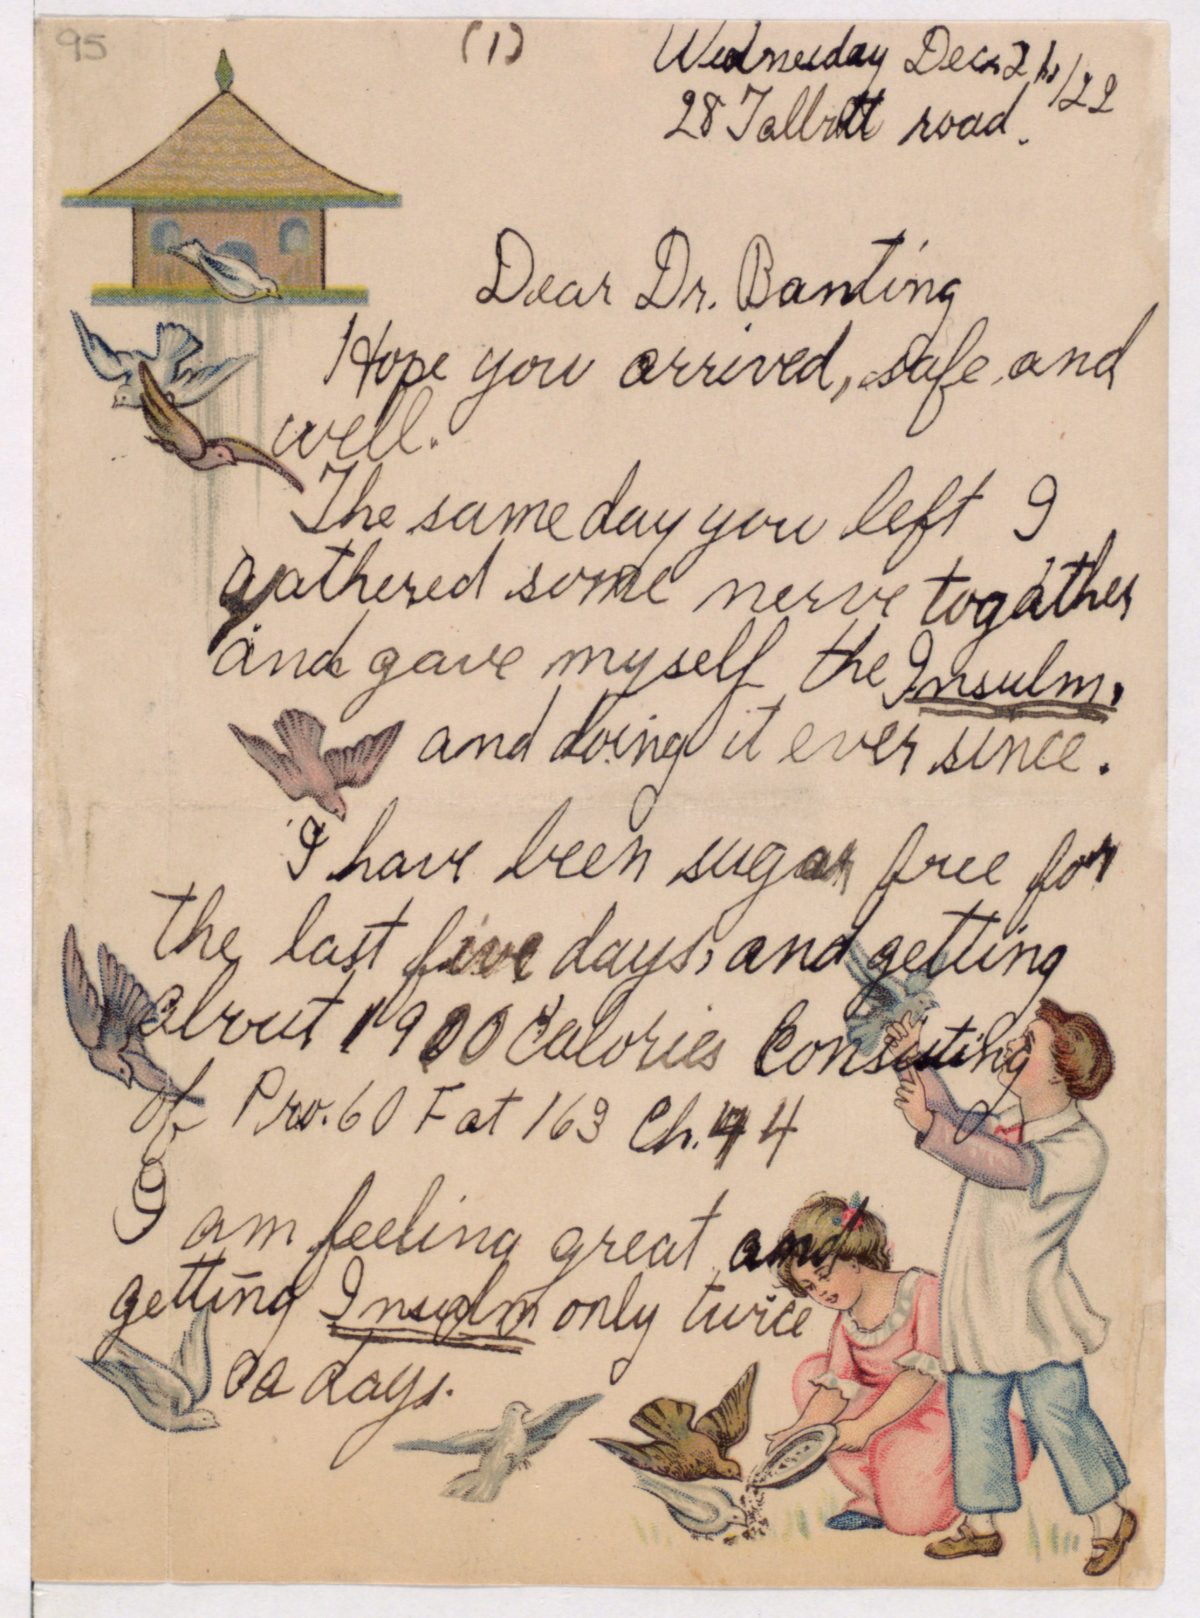 95
(1)
Wednesday Dec. /22
28 Talbott road.
Dear Dr. Banting
Hope you arrived, safe and
well.
The same day you left I
gathered some nerve togather
and gave myself the Insulin,
and doing it ever since.
I have been sugar free for
the last five days, and getting
about 1900 Calories Consisting
of Pro. 60 Fat 163 Ch. 44
I am feeling great and
getting Insulin only twice
a days.